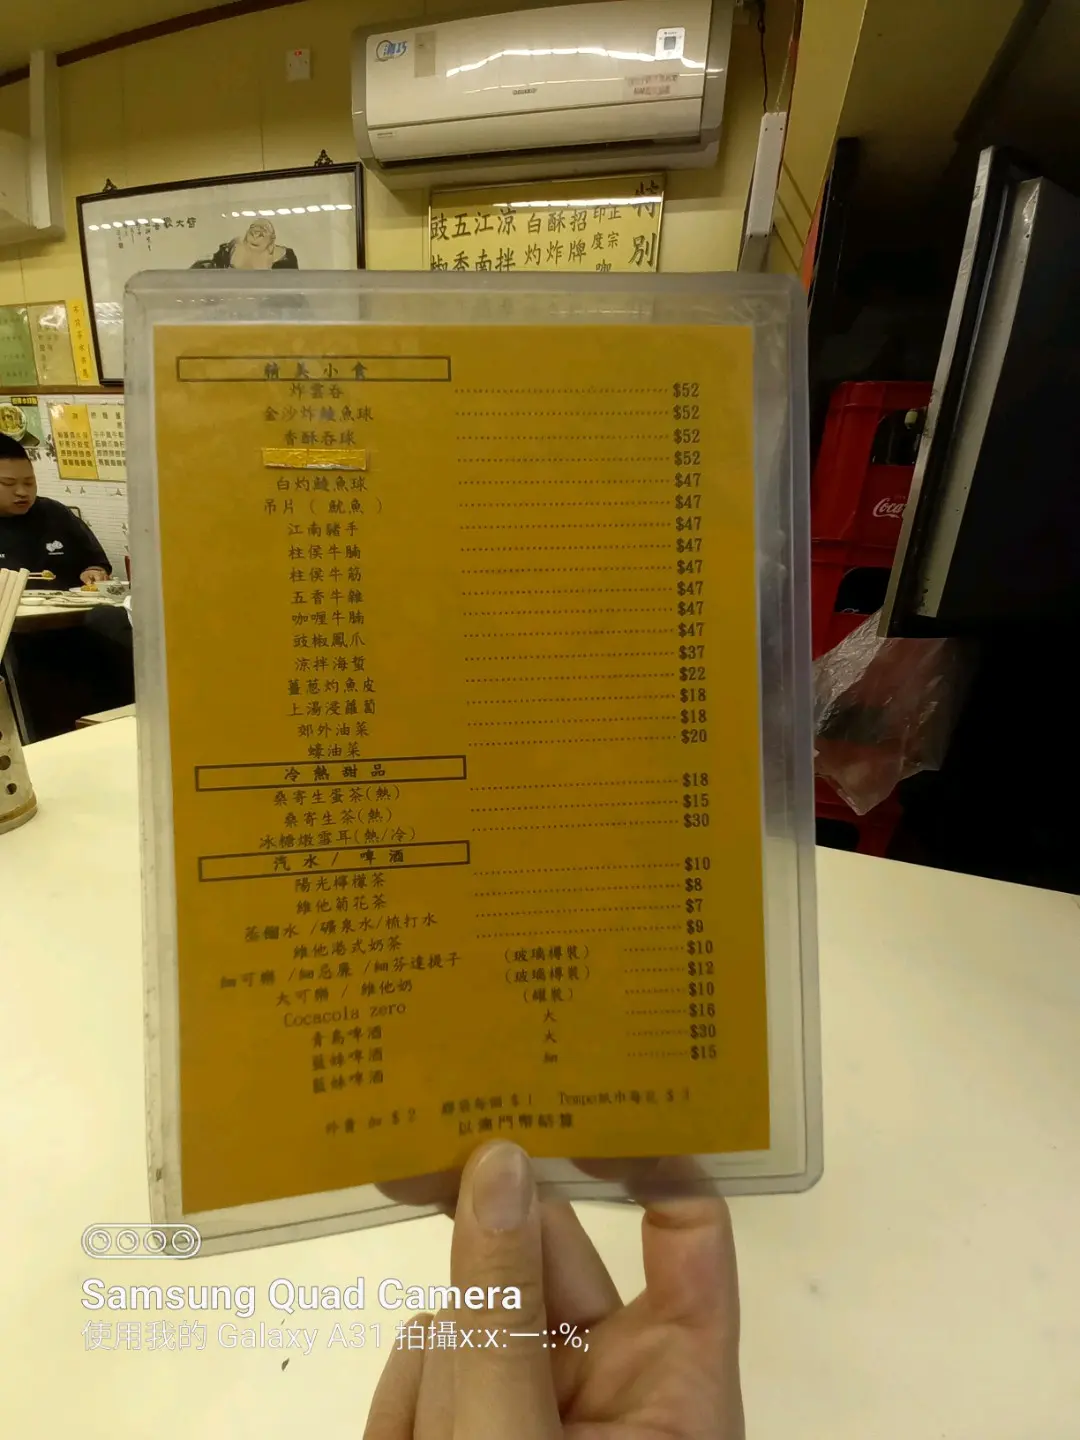 特別
正宗
印度咖
招牌
酥炸
白灼
涼拌
江南
五香
豉椒
精美小食
炸雲吞 $52
金沙炸鯪魚球 $52
香酥吞球 $52
$52
白灼鯪魚球 $47
吊片 ( 魷魚 ) $47
江南豬手 $47
柱侯牛腩 $47
柱侯牛筋 $47
五香牛雜 $47
咖喱牛腩 $47
豉椒鳳爪 $47
涼拌海蜇 $37
薑葱灼魚皮 $22
上湯浸蘿蔔 $18
郊外油菜 $18
蠔油菜 $20
冷熱甜品
桑寄生蛋茶(熱) $18
桑寄生茶(熱) $15
冰糖燉雪耳(熱/冷) $30
汽水/ 啤酒
陽光檸檬茶 $10
維他菊花茶 $8
蒸餾水 /礦泉水/梳打水 $7
維他港式奶茶 $9
細可樂 /細忌廉 /細芬達提子 (玻璃樽裝) $10
大可樂 / 維他奶 (玻璃樽裝) $12
Cocacola zero (罐裝) $10
青島啤酒 大 $16
藍妹啤酒 大 $30
藍妹啤酒 細 $15
外賣 加 $ 2 膠袋每個 $ 1 Tempo紙巾每包 $ 3
以澳門幣結算
Coca
Samsung Quad Camera
使用我的 Galaxy A31 拍攝x:x:一::%;